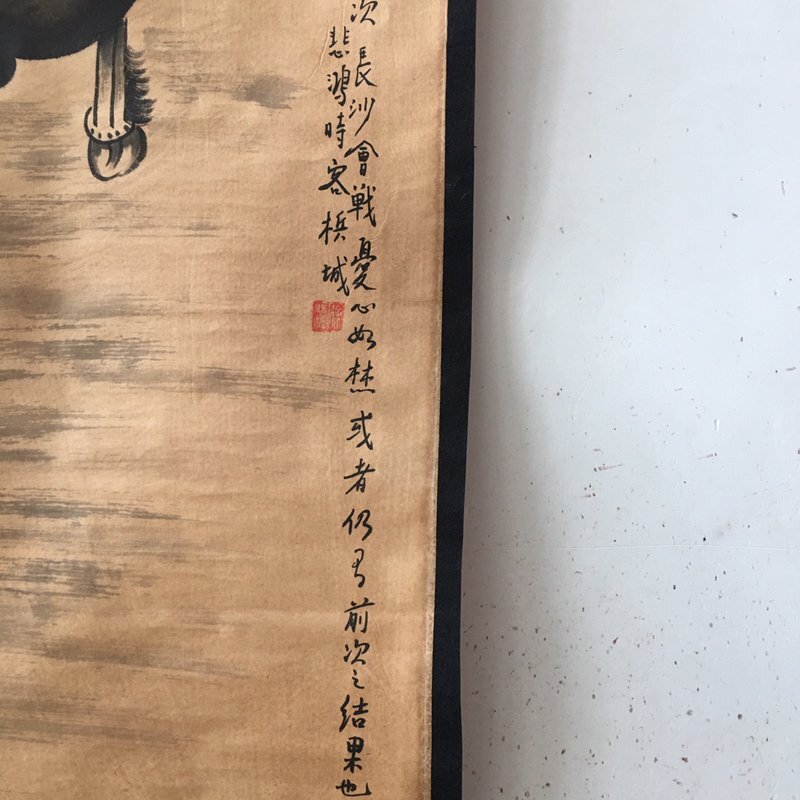 次長沙會戦憂心如焚或者仍有前次之結果也
悲鴻時客梹城